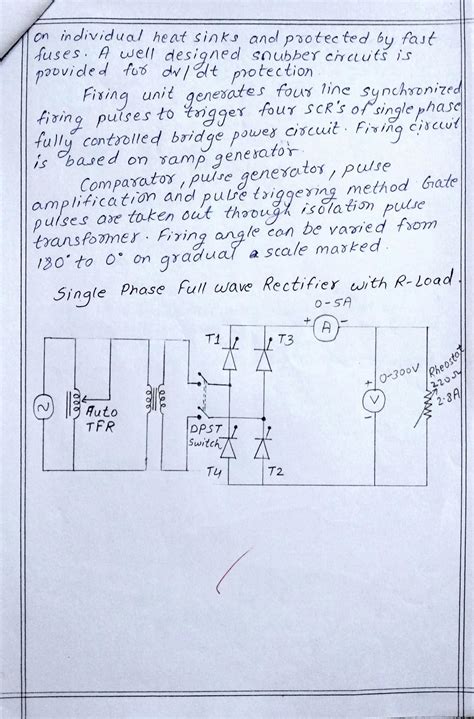 on individual heat sinks and protected by fast
fuses. A well designed snubber circuits is
provided for dv/dt protection.
Firing unit generates four line synchronized
firing pulses to trigger four SCR's of single phase
fully controlled bridge power circuit. Firing circuit
is based on ramp generator.
Comparator, pulse generator, pulse
amplification and pulse triggering method Gate
pulses are taken out through isolation pulse
transfomer. Firing angle can be varied from
180° to 0° on gradual a scale marked.
Single Phase Full wave Rectifier with R-Load.
0-5A
+ A -
T1
T3
Auto
TFR
DPST
Switch
T4
T2
+
V
-
0-300V
Rheostat
220Ω
2.8A